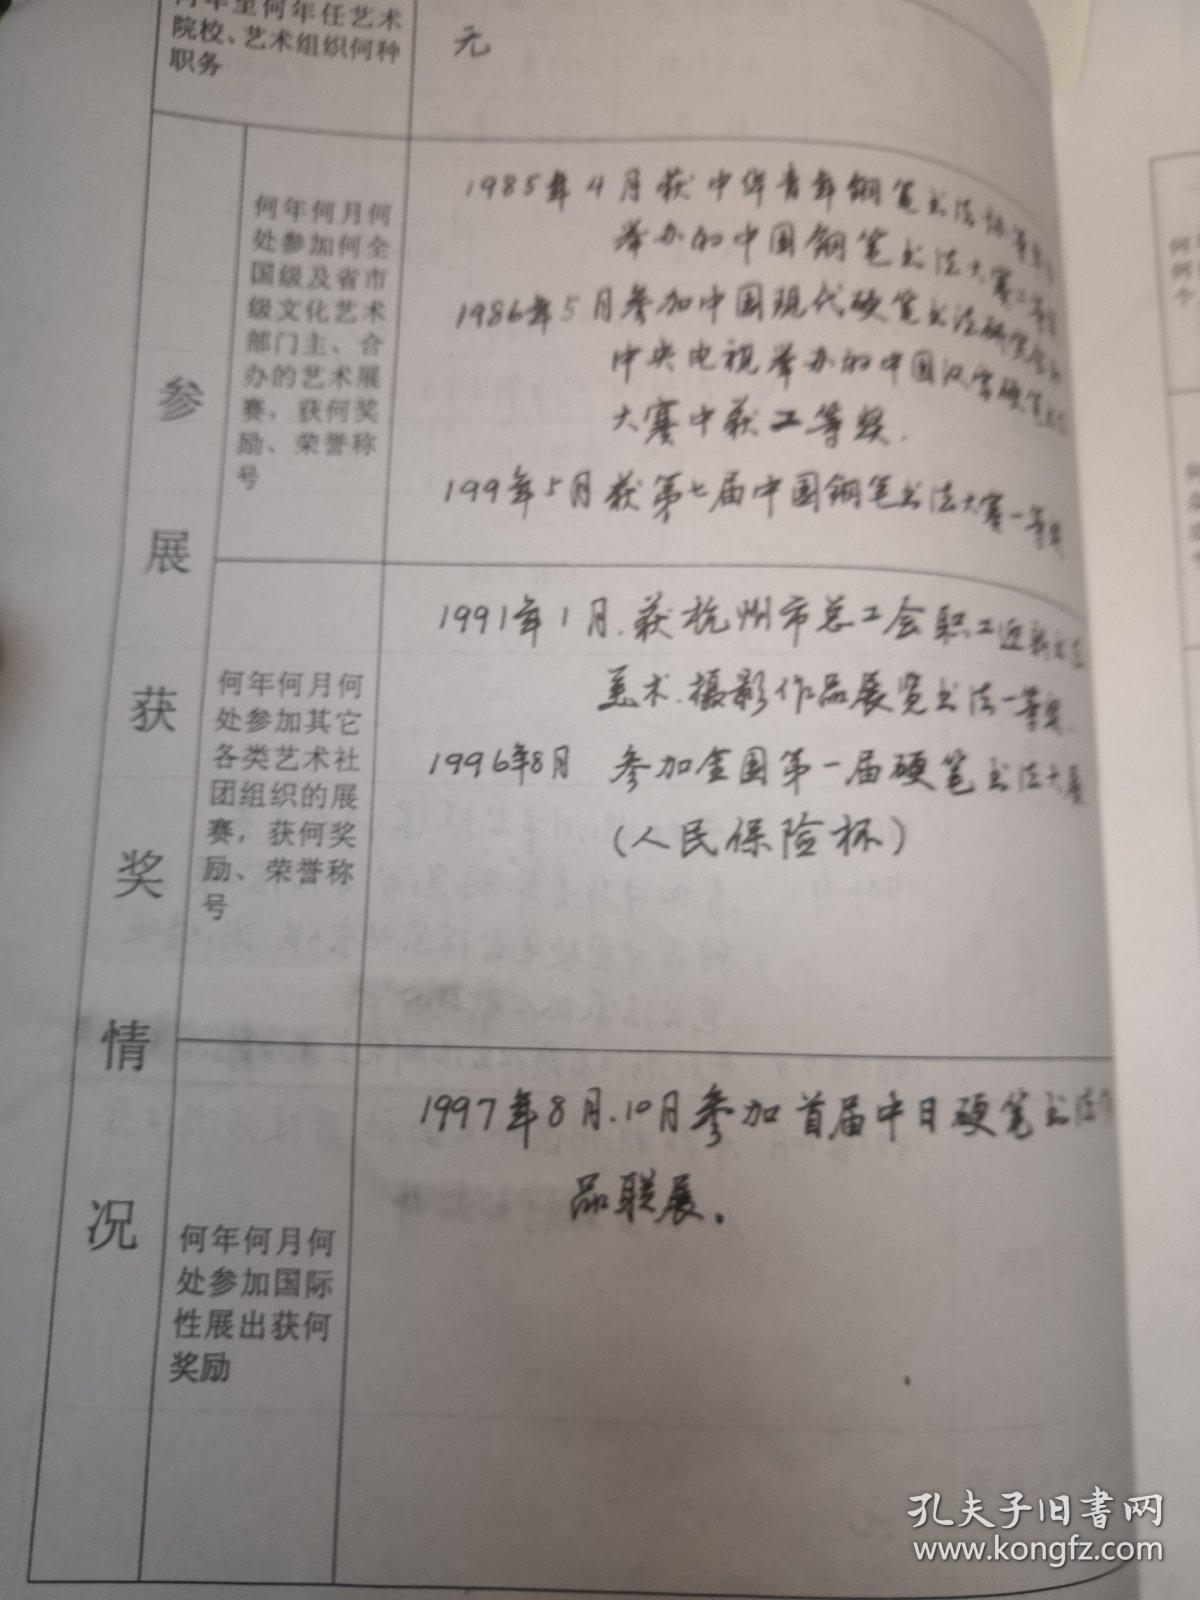 何年至何年任艺术
院校、艺术组织何种
职务
无
参展获奖情况
何年何月何
处参加何全
国级及省市
级文化艺术
部门主、合
办的艺术展
赛，获何奖
励、荣誉称
号
1985年4月获中华青年钢笔书法协
举办的中国钢笔书法大赛二等
1986年5月参加中国现代硬笔书法研究会
中央电视举办的中国汉字硬笔书法
大赛中获二等奖.
199年5月获第七届中国钢笔书法大赛一等奖
何年何月何
处参加其它
各类艺术社
团组织的展
赛，获何奖
励、荣誉称
号
1991年1月.获杭州市总工会职工迎新书法
美术.摄影作品展览书法一等奖.
1996年8月 参加全国第一届硬笔书法大展
（人民保险杯）
何年何月何
处参加国际
性展出获何
奖励
1997年8月.10月参加首届中日硬笔书法作
品联展.
孔夫子旧书网
www.kongfz.com